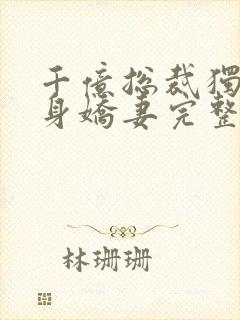 千億總裁獨
身嬌妻完整
林珊珊